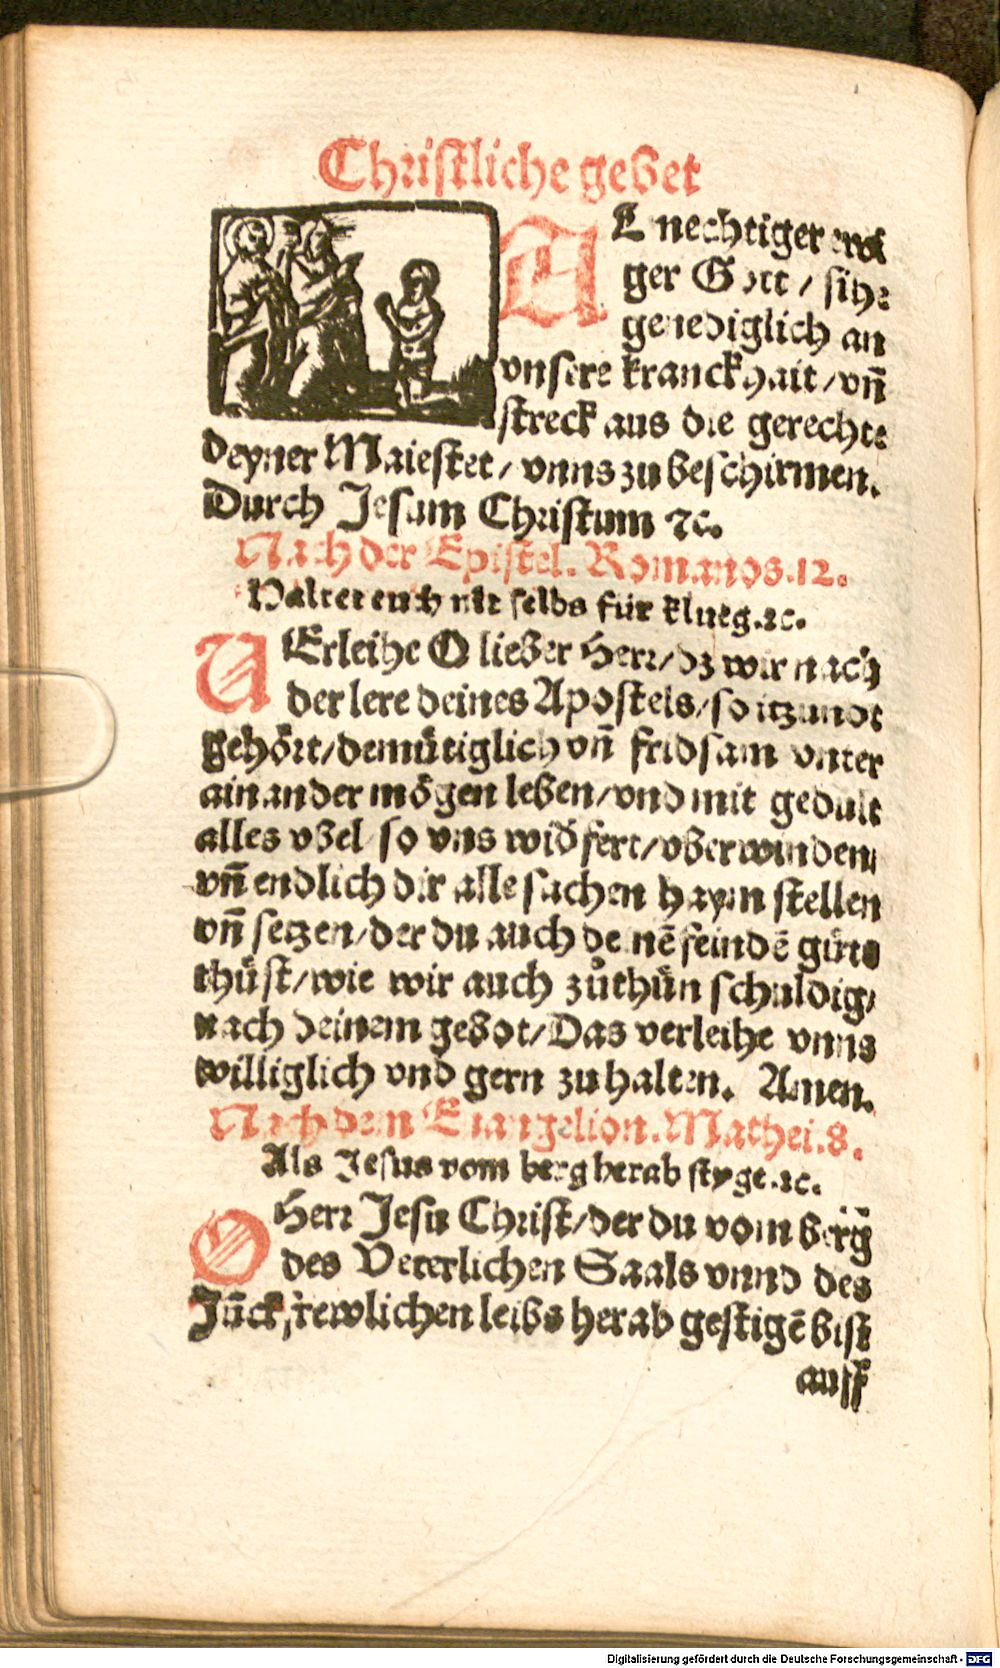 Christliche gebet
ALmechtiger ewi
ger Gott / sihe
genediglich an
vnsere kranckhait / vñ
streck aus die gerechte
deyner Maiestet / vnns zu beschirmen.
Durch Jesum Christum ꝛc.
Nach der Epistel. Romanos. 12.
Haltet euch nit selbs für klueg. ꝛc.
VErleihe O lieber Herr / dz wir nach
der lere deines Apostels / so itzundt
gehört / demütiglich vñ fridsam vnter
ainander mögen leben / vnd mit gedult
alles vbel so vns widfert / vberwinden /
vñ endlich dir alle sachen haym stellen
vñ setzen / der du auch deinē feindē güts
thüst / wie wir auch zůthün schuldig /
nach deinem gebot / Das verleihe vnns
williglich vnd gern zu halten. Amen.
Nach dem Euangelion. Mathei. 8.
Als Jesus vom berg herab styge. ꝛc.
O Herr Jesu Christ / der du vom berg
des Veterlichen Saals vnnd des
Jūckfrewlichen leibs herab gestigē bist
auff
Digitalisierung gefördert durch die Deutsche Forschungsgemeinschaft - DFG